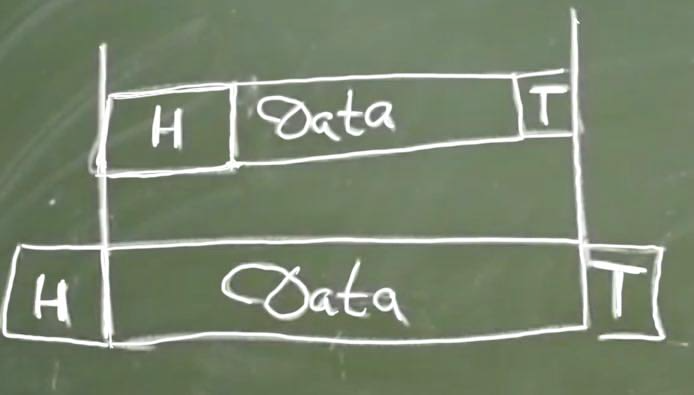 H Data T
H Data T